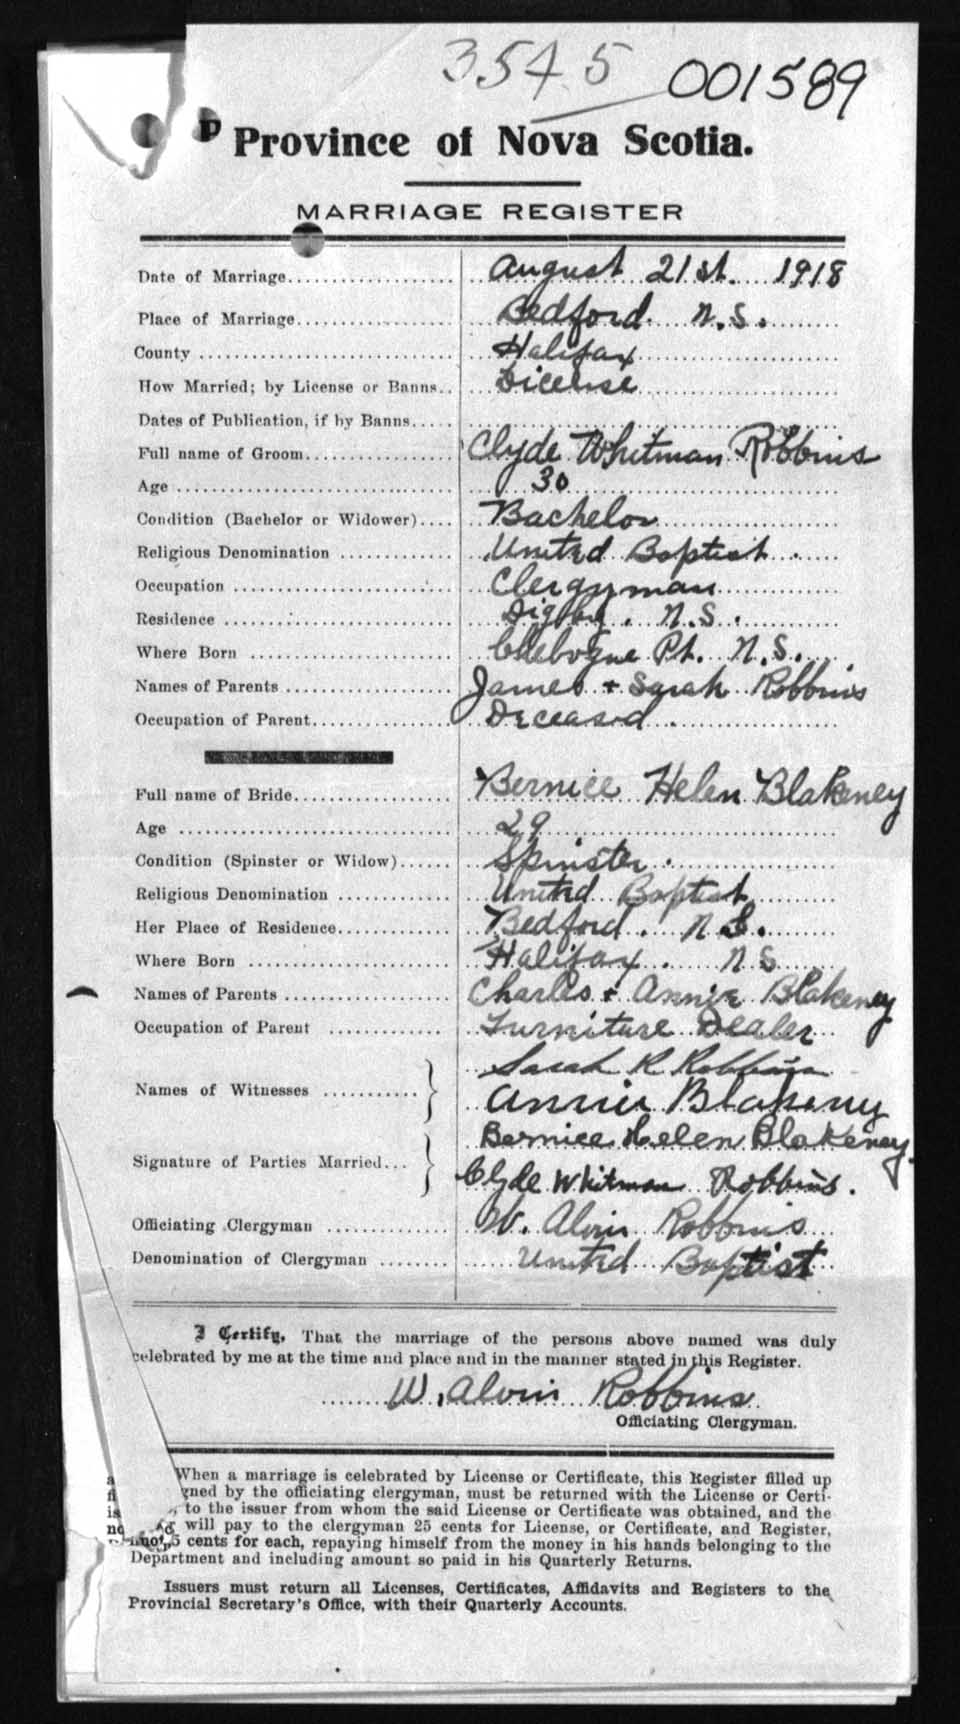 3545 001589
Province of Nova Scotia.
MARRIAGE REGISTER
Date of Marriage August 21st. 1918
Place of Marriage Bedford N.S.
County Halifax
How Married; by License or Banns License
Dates of Publication, if by Banns
Full name of Groom Clyde Whitman Robbins
Age 30
Condition (Bachelor or Widower) Bachelor
Religious Denomination United Baptist
Occupation Clergyman
Residence Digby. N.S.
Where Born Chebogue Pt. N.S.
Names of Parents James + Sarah Robbins
Occupation of Parent Deceased.
Full name of Bride Bernice Helen Blakeney
Age 29
Condition (Spinster or Widow) Spinster.
Religious Denomination United Baptist
Her Place of Residence Bedford. N.S.
Where Born Halifax. N S
Names of Parents Charles + Annie Blakeney
Occupation of Parent Furniture Dealer
Sarah R Robbins
Names of Witnesses
Annie Blakeney
Bernice Helen Blakeney.
Signature of Parties Married
Clyde Whitman Robbins.
Officiating Clergyman W. Alvin Robbins
Denomination of Clergyman United Baptist
I Certify, That the marriage of the persons above named was duly
celebrated by me at the time and place and in the manner stated in this Register.
W. Alvin Robbins
Officiating Clergyman.
When a marriage is celebrated by License or Certificate, this Register filled up
gned by the officiating clergyman, must be returned with the License or Certi-
, to the issuer from whom the said License or Certificate was obtained, and the
will pay to the clergyman 25 cents for License, or Certificate, and Register,
5 cents for each, repaying himself from the money in his hands belonging to the
Department and including amount so paid in his Quarterly Returns.
Issuers must return all Licenses, Certificates, Affidavits and Registers to the
Provincial Secretary's Office, with their Quarterly Accounts.